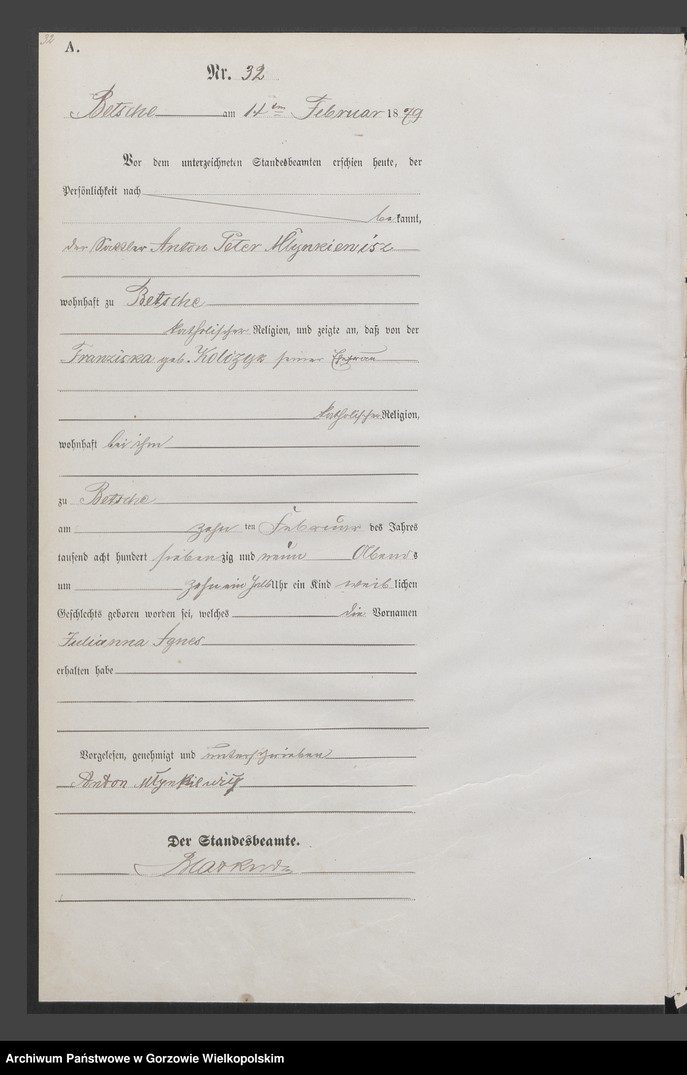 32
A.
Nr. 32
Betsche am 14 ten Februar 1879
Vor dem unterzeichneten Standesbeamten erschien heute, der
Persönlichkeit nach
bekannt,
der Sattler Anton Peter Mlynkiewicz
wohnhaft zu Betsche
katholischer Religion, und zeigte an, daß von der
Franziska geb. seiner Ehefrau
katholischer Religion,
wohnhaft bei ihm
zu Betsche
am zehn ten Februar des Jahres
tausend acht hundert siebenzig und neun Abends
um zehn ein halb Uhr ein Kind weiblichen
Geschlechts geboren worden sei, welches die Vornamen
Julianna Agnes
erhalten habe
Vorgelesen, genehmigt und unterschrieben
Anton
Der Standesbeamte.
Archiwum Państwowe w Gorzowie Wielkopolskim